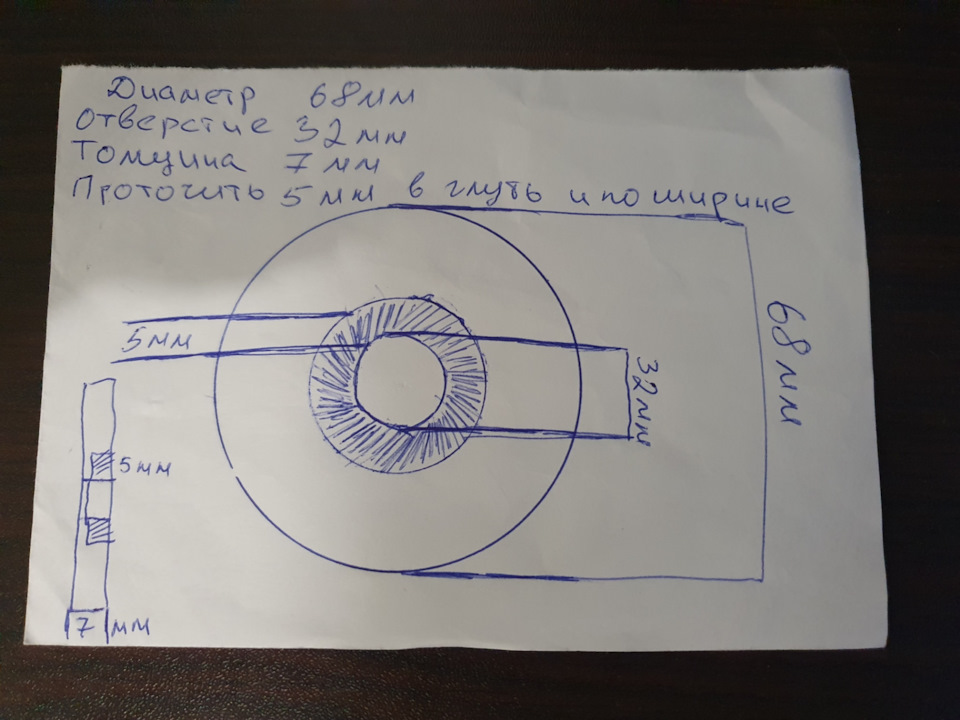 Диаметр 68мм
Отверстие 32мм
Томщина 7мм
Проточить 5мм в глуть и по ширине
5мм
68мм
32мм
5мм
7 мм